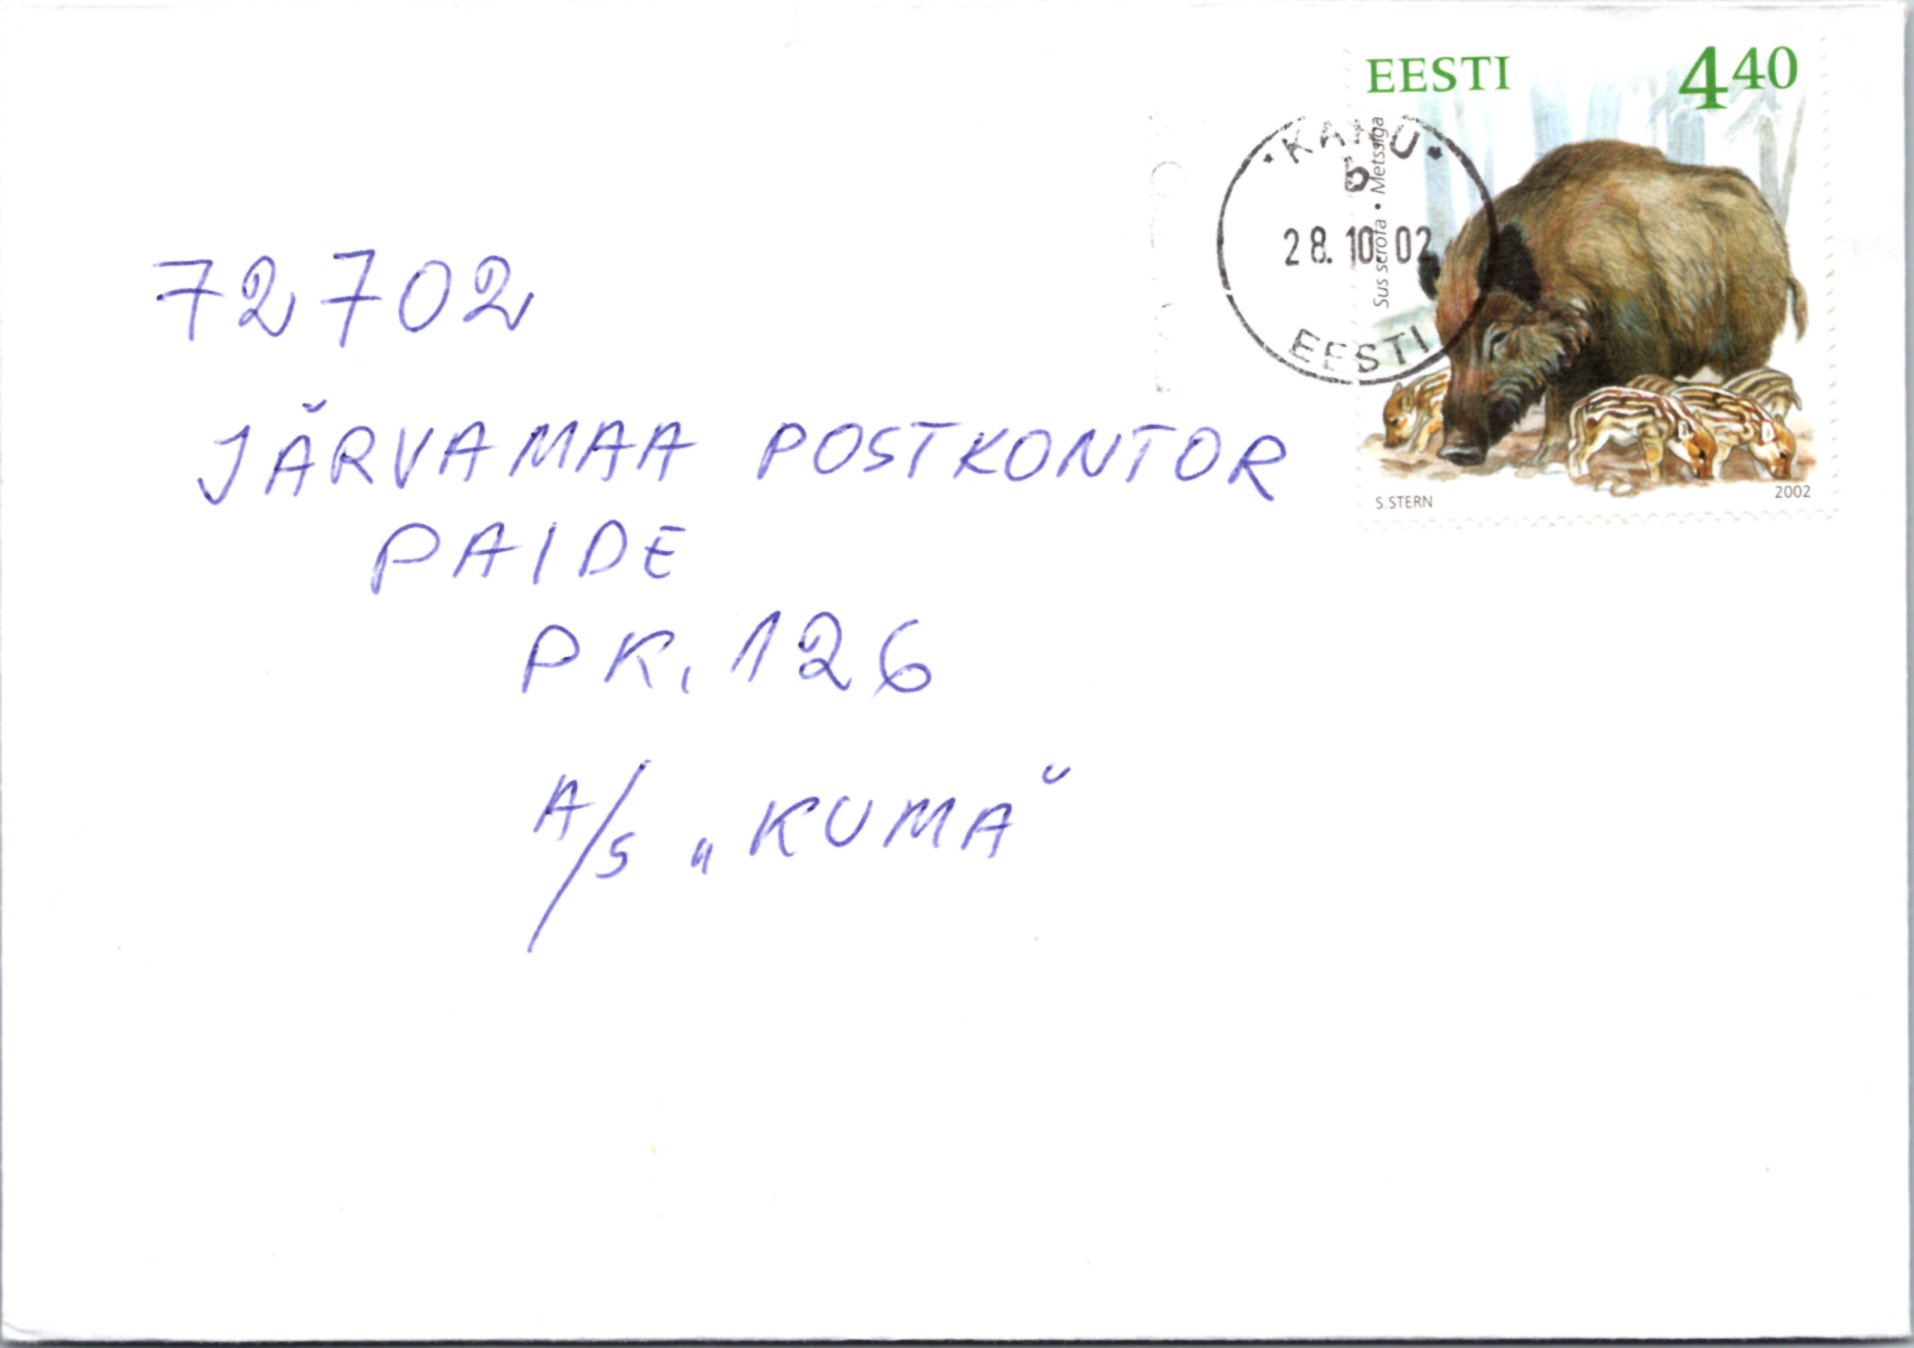 EESTI 4 40
Sus scrofa • Metssiga
b
28.10.02
EESTI
S.STERN 2002
72702
JÄRVAMAA POSTKONTOR
PAIDE
PK. 126
A/S „KUMA“